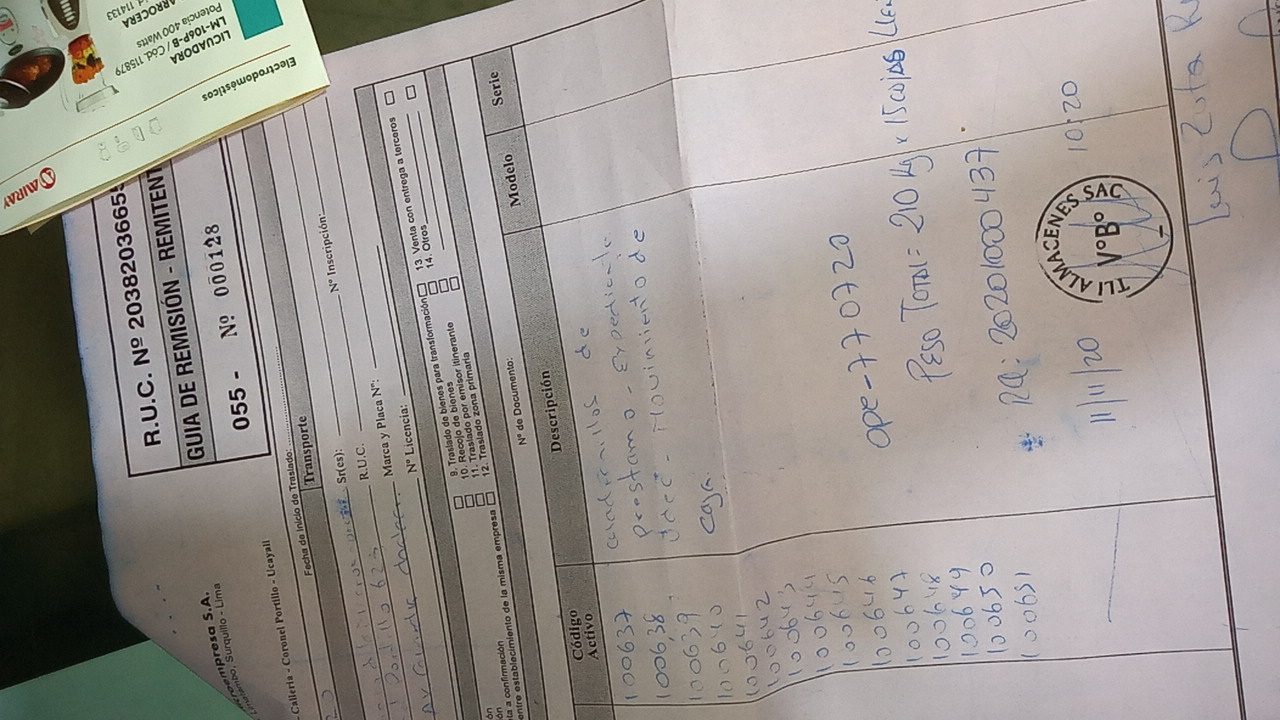 MIRAY
Electrodomésticos
LICUADORA
LM-106P-B / Cód. 115879
Potencia 400 Watts
ARROCERA
R.U.C. Nº 2038203665
GUIA DE REMISIÓN - REMITENT
055 - Nº 000128
empresa S.A.
Surquillo - Lima
Calleria - Coronel Portillo - Ucayali
Fecha de Inicio de Traslado:
Transporte
Sr(es):
R.U.C.
Nº Inscripción:
Marca y Placa Nº:
Nº Licencia:
9. Traslado de bienes para transformación
10. Recojo de bienes
11. Traslado por emisor itinerante
12. Traslado zona primaria
13. Venta con entrega a terceros
14. Otros
a a confirmación
entre establecimiento de la misma empresa
Nº de Documento:
Código Activo
Descripción
Modelo
Serie
100637 cuadernillos de
100638 prestamo - Expediente
100639 movimiento de
100640 caja
100641
100642
100643
100644
100645 ope-770720
100646
100647 Peso Total = 210 kg x 15 cajas
100648
100649
100650 RQ: 20201000437
100651
TLI ALMACENES SAC
VºBº
11/11/20 10:20
Luis Zuta